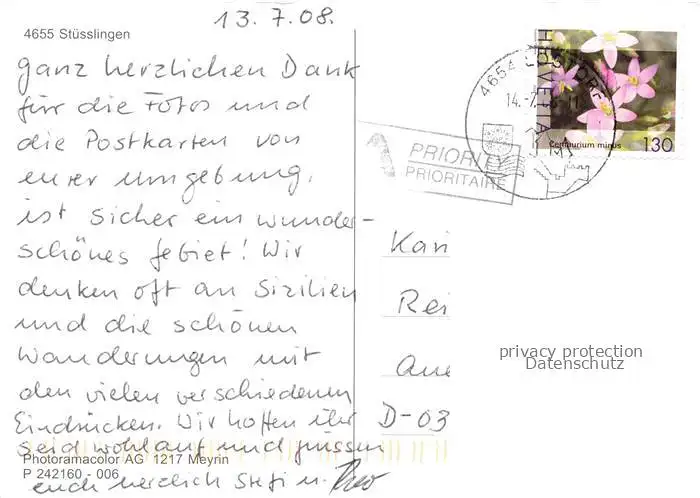 13.7.08.
4655 Stüsslingen
ganz herzlichen Dank
für die Fotos und
die Postkarten von
eurer Umgebung,
ist sicher ein wunder-
schönes Gebiet! Wir
denken oft an Sizilien
und die schönen
Wanderungen mit
den vielen verschiedenen
Eindrücken. Wir hoffen ihr
seid wohlauf und grüssen
euch herzlich Stefi u. Theo
Photoramacolor AG 1217 Meyrin
P 242160 - 006
HELVETIA
Centaurium minus 130
4654 LOSTORF
14.-7.
A PRIORITY
PRIORITAIRE
Kari
Rei
D-03
privacy protection
Datenschutz